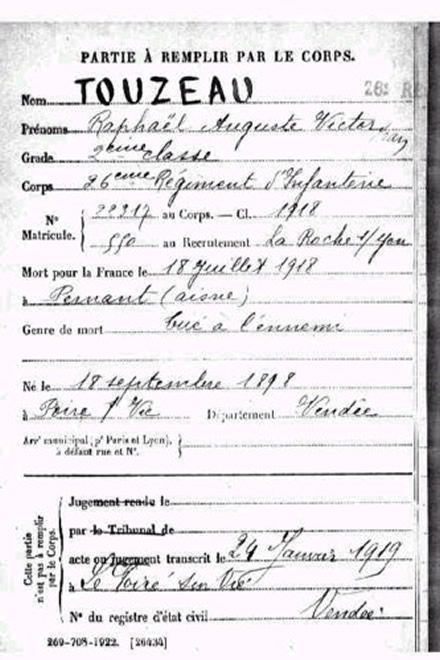 PARTIE À REMPLIR PAR LE CORPS.
Nom TOUZEAU
Prénoms Raphaël Auguste Victor
Grade 2ème classe
Corps 26ème Régiment d'Infanterie
N° Matricule. { 22917 au Corps. — Cl. 1918
550 au Recrutement La Roche s/yon
Mort pour la France le 18 Juillet 1918
à Pernant (aisne)
Genre de mort tué à l'ennemi
Né le 18 septembre 1898
à Poiré s/ Vie Département Vendée
Arrt municipal (pr Paris et Lyon), à défaut rue et N°.
Cette partie n'est pas à remplir par le Corps.
Jugement rendu le
par le Tribunal de
acte ou jugement transcrit le 24 Janvier 1919
à Le Poiré sur Vie
N° du registre d'état civil Vendée
269-708-1922. [26434]